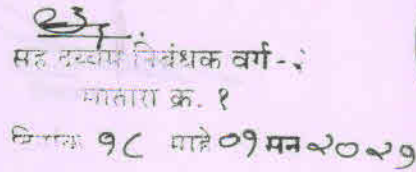 सह दुय्यम निबंधक वर्ग -
सातारा क्र. १
दिनांक १८ माहे ०१ सन २०२१